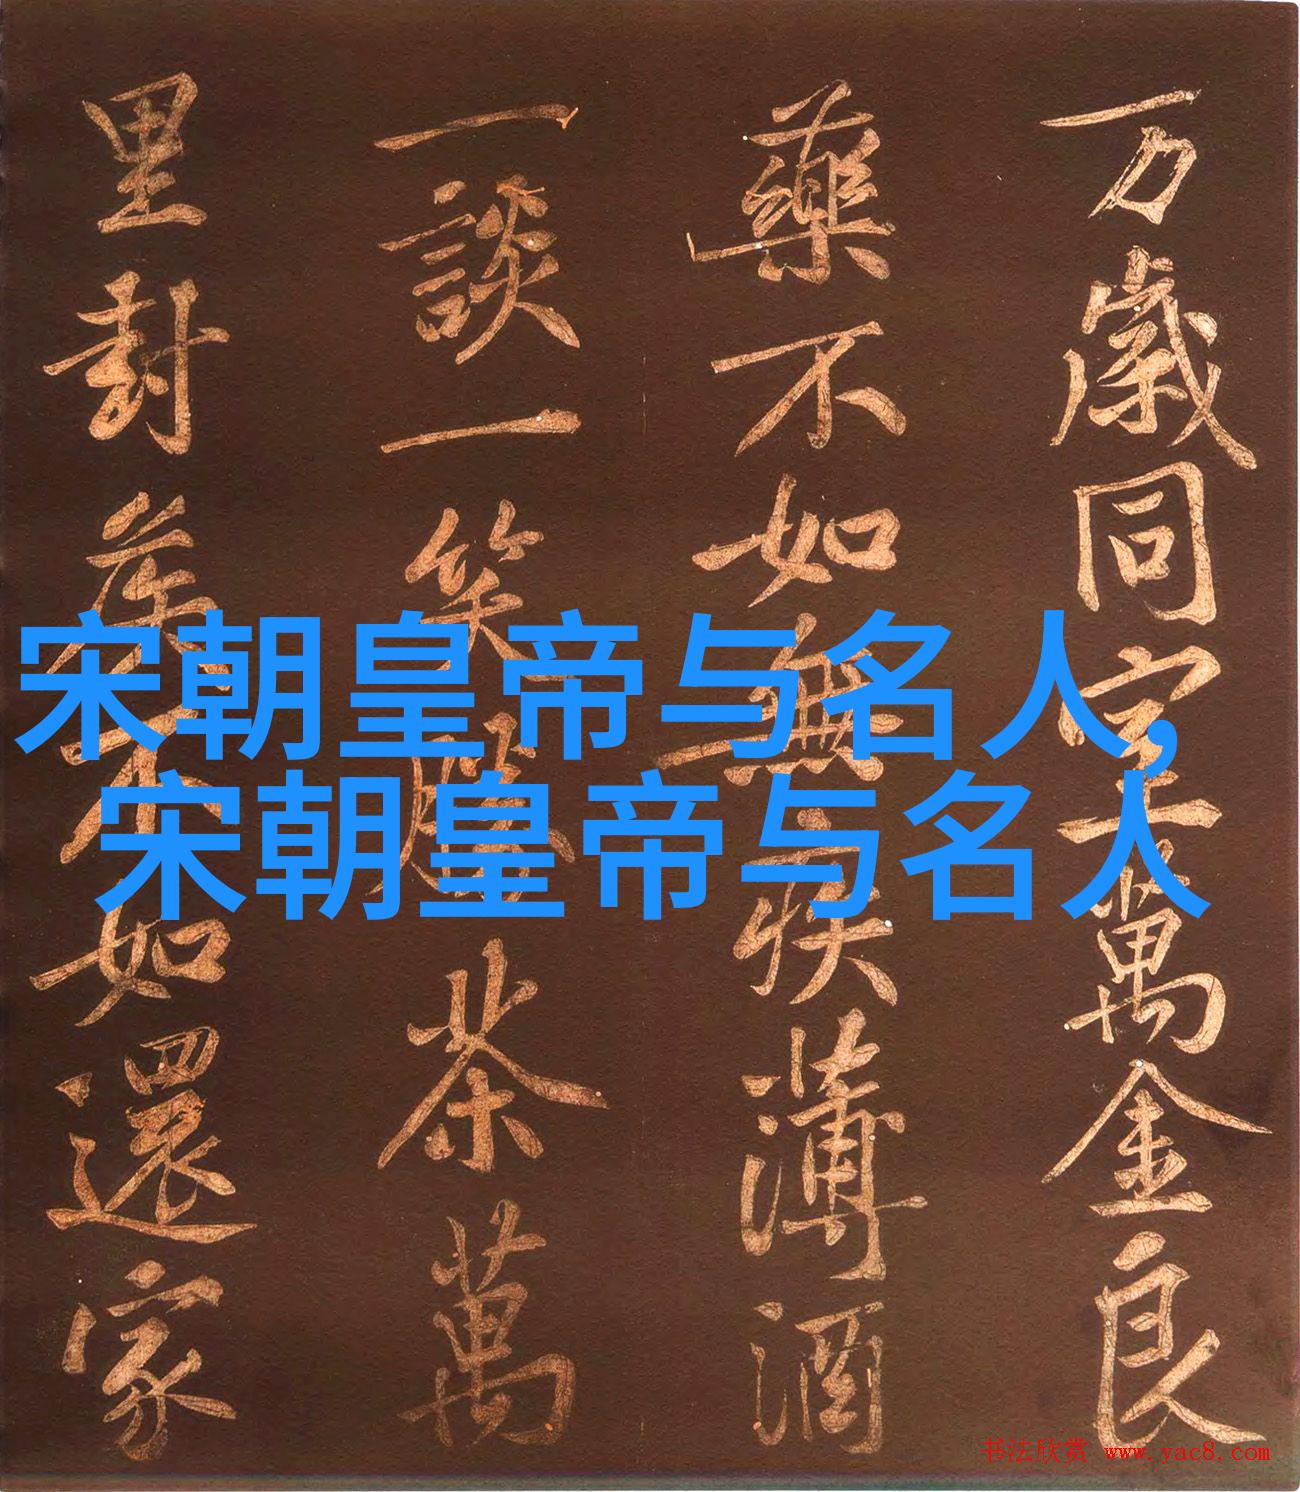 万歲同室萬金良
藥不如無疾薄酒
一談一笑勝茶萬
里封侯不如還家
宋朝皇帝与名人,
宋朝皇帝与名人
书法欣赏 www.yac8.com